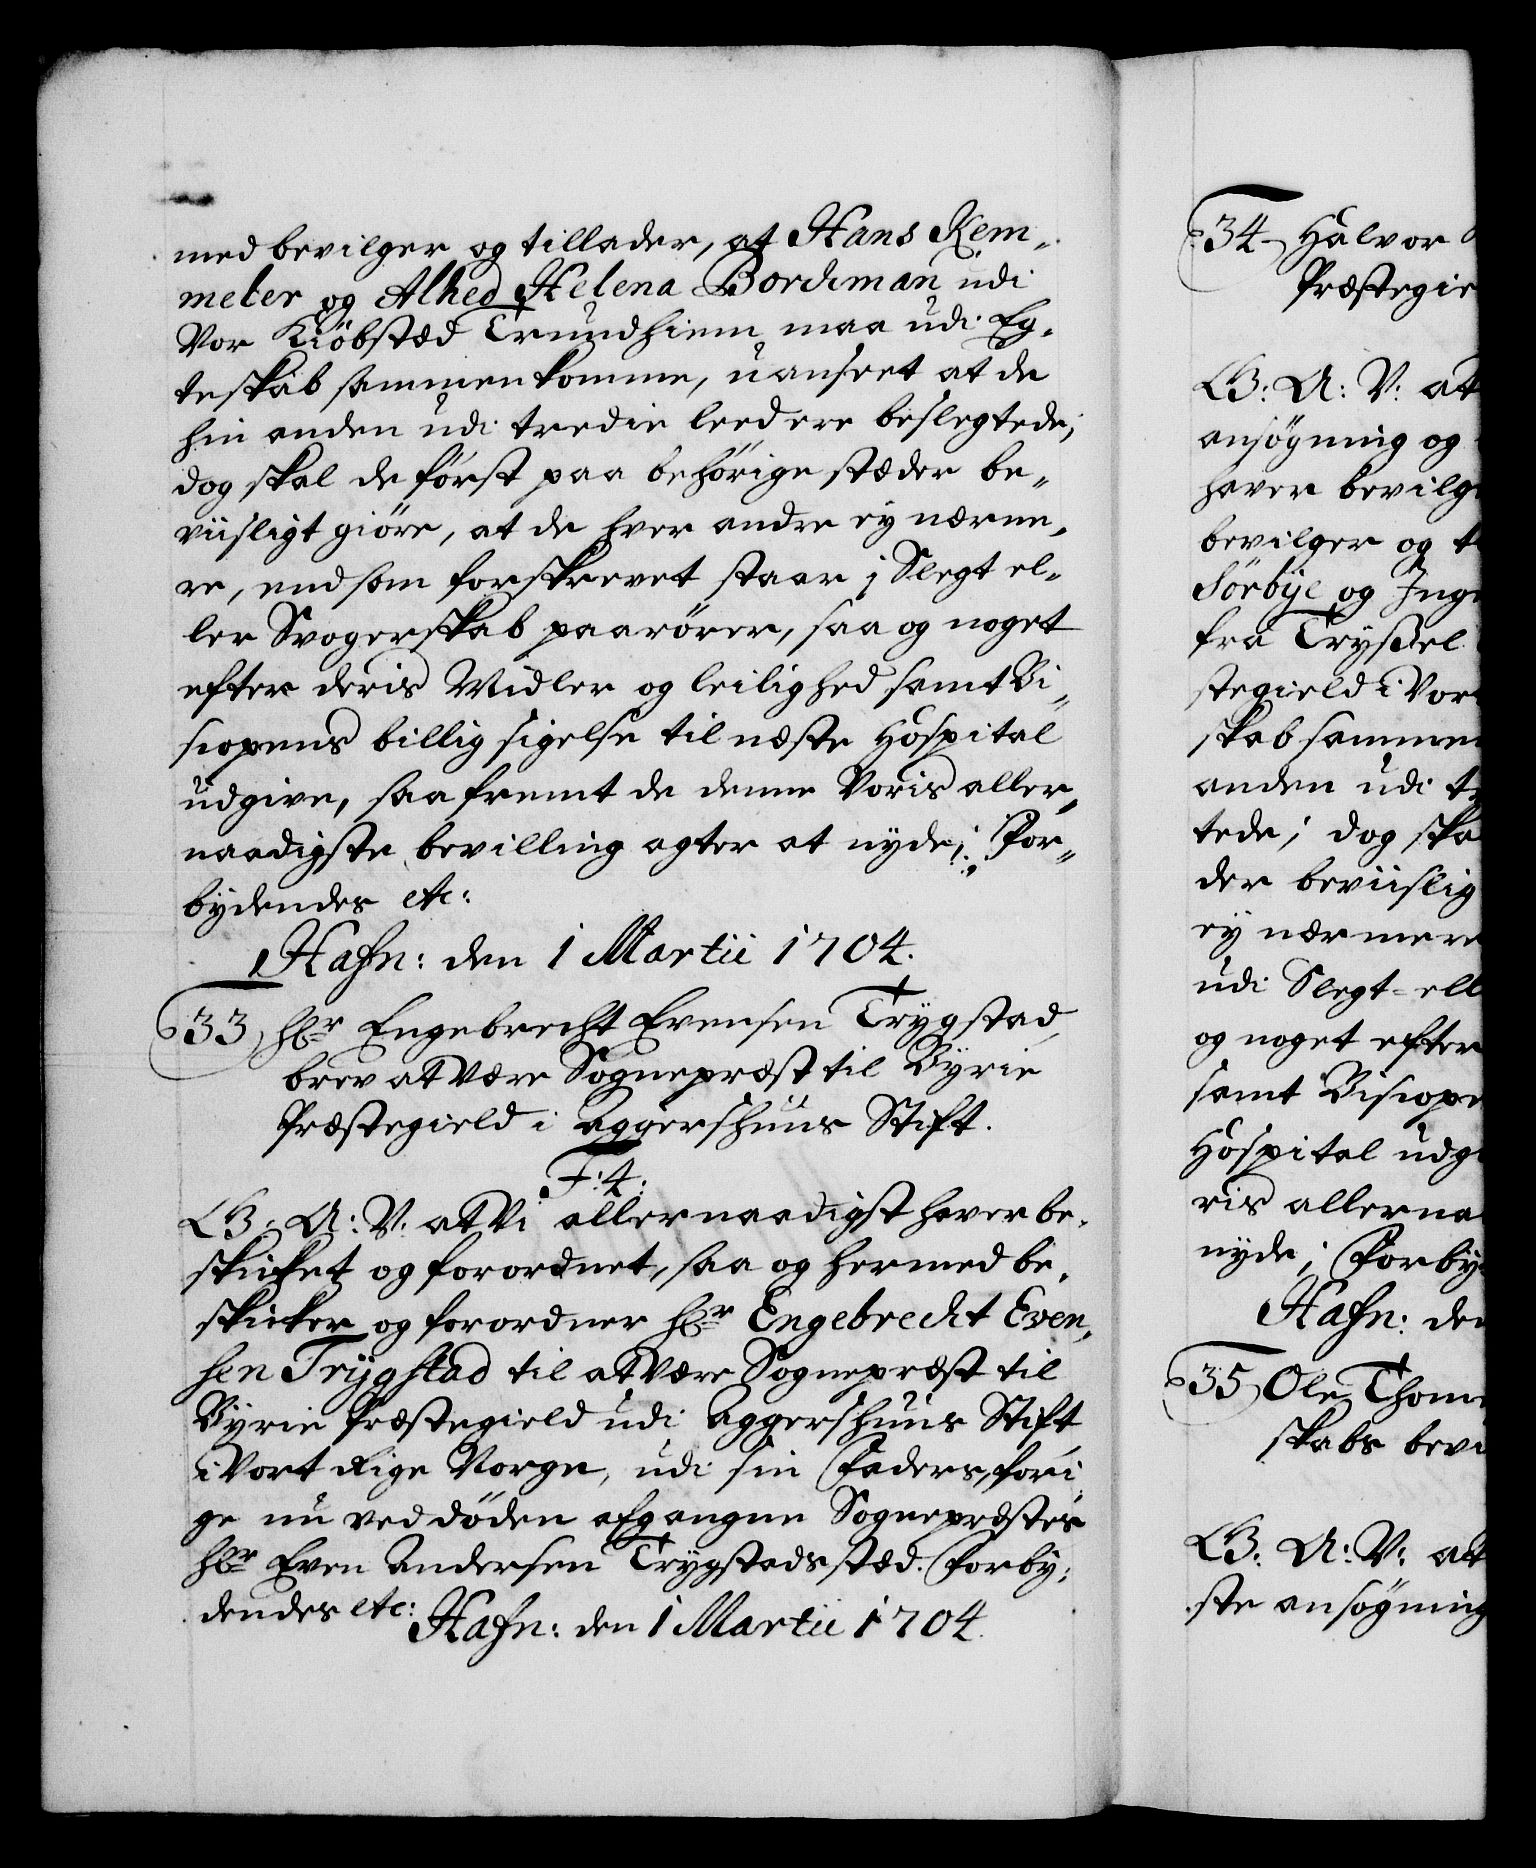 med bevilger og tillader, at Hans Kem„
meter og Alhed Helena Bordeman udi
Vor Kiöbsted Trundhiem maa udi Eg„
teskab sammenkomme, uanseet at de
hin anden udi tredie leed ere beslegtede;
dog skal de först paa behörige stæder be„
viisligt giöre, at de hver andre ej nærme„
re, end som forskrevet staar i Slegt el„
ler Svogerskab paarörer, saa og noget
efter deris Midler og leilighed samt Bi„
scopens billig sigelse til neste Hospital
udgive, saafremt de denne Voris aller„
naadigste bevilling agter at nyde; For„
bydendes etc:
Hafn: den 1 Martii 1704.
33 Hr Engebrecht Evensen Trygstad
brev at være Sognepræst til Byrie
Præstegield i Aggershuus Stift.
F: 4:
G: A: V: at Vi allernaadigst haver be„
skicket og forordnet, saa og hermed be„
skicker og forordner Hr Engebrecht Even„
sen Trygstad til at være Sognepræst til
Byrie Præstegield udi Aggershuus Stift
i Vort Rige Norge, udi sin Faders, fori„
ge nu ved döden afgangne Sognepræstes
Hr Even Andersen Trygstads stæd. Forby„
dendes etc: Hafn: den 1 Martii 1704.
34 Halvor
Præstegie
G: A: V: at
ansögning og
haver bevilg
bevilger og t
Sörbye og Inge
fra Tryssel
stegield i Vor
skab sammen
anden udi t
tede; dog ska
der beviislig
ej nærmere
udi Slegt- ell
og noget efter
samt Biscope
Hospital udg
ris allerna
nyde; Forby
Hafn: den
35 Ole Thom
skabs bevi
G: A: V: at
ste ansögning